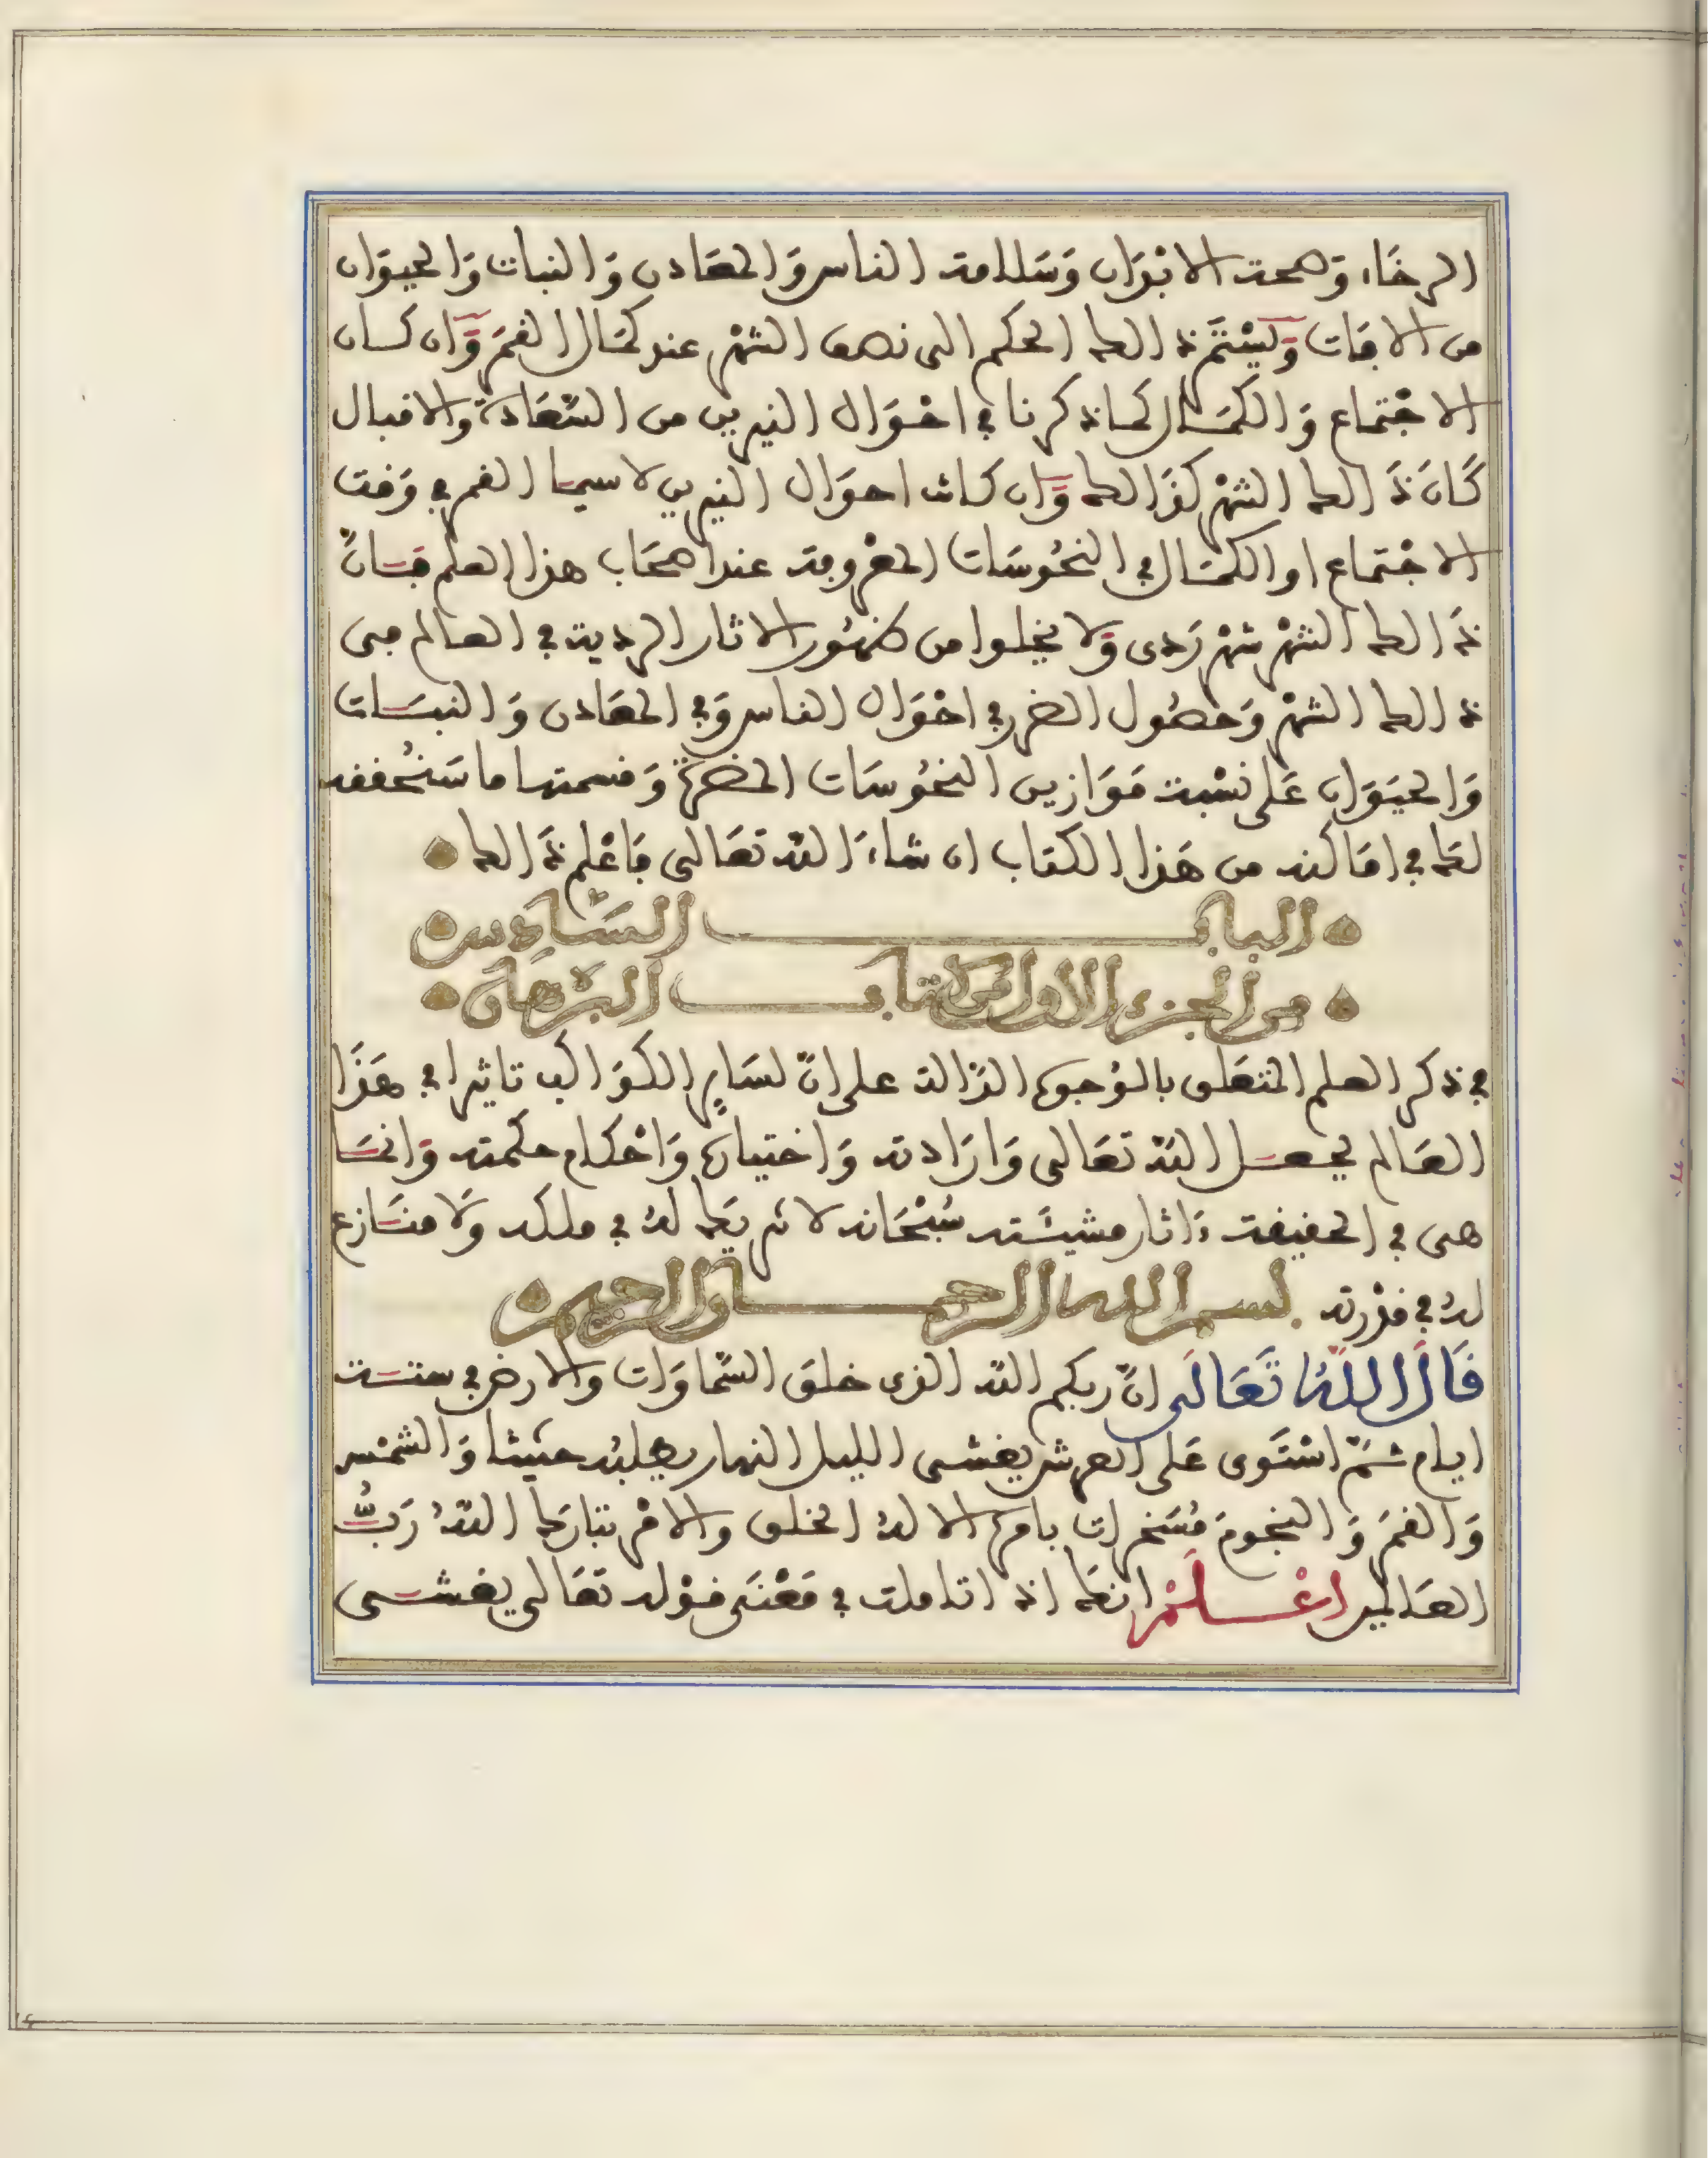 الرخاء وَصحة الابْدَان وَسَلامة الناس وَالمعَادن وَالنبات وَالحيوَان
من الافات وَيَسْتَمر ذالك الحكم الى نصف الشهْر عند كمَال القمَر وَان كان
الاجْتماع وَالكمَال كما ذكرنا في احْوَال النيرين من السّعَادة والاقبال
كَانَ ذَالك الشهْر كذَالك وَان كانت احوَال النيرين لاسيما القمر في وَقت
الاجْتماع او الكمَال في النحُوسَات المعْروفة عند اصحَاب هذا العلم فانّ
ذَالك الشهْر شهْر رَدى وَلا يخلوا من ظهُور الاثار الردية في العالم في
ذالك الشهْر وَحصُول الضرر في احْوَال الناس وَفي المعَادن وَالنبات
وَالحيَوَان عَلى نسْبة مَوَازين النحُوسَات المضرّة وَقسمتها ما سَنُحققه
لك في امَاكنه من هَذا الكتاب ان شاءَ الله تعَالى فَاعْلم ذَالك
البابـــــ السَّادس
من الجزء الاول من كتابـــــ البرْهَان
في ذكر العلم المتعَلق بالوُجوه الدَّالة على انّ لسَاير الكوَاكب تاثيرا في هَذَا
العَالم بجعل الله تعَالى وَارَادته وَاختياره وَاحْكام حكمته وَانمَا
هى في الحقيقة ءَاثار مشيئَته سُبْحَانه لا شريكَ لهُ في ملكه وَلا منَازع
لهُ في قدْرته بسم الله الرحمــــان الرحيم
قَالَ اللهُ تَعَالَى انّ ربكم الله الذى خلق السّمَاوَات وَالارض في ستة
ايام ثمّ اسْتَوى عَلى العرش يغشى الليل النهار يطلبُه حثيثا وَالشمْس
وَالقمَر وَالنجُومَ مُسَخرات بامره الا لهُ الخلق والامْر تبارَك اللهُ رَبُّ
العَالمين اعْلَمْ انكَ اذا تاملت في مَعْنَى قوْله تعَالى يغشى